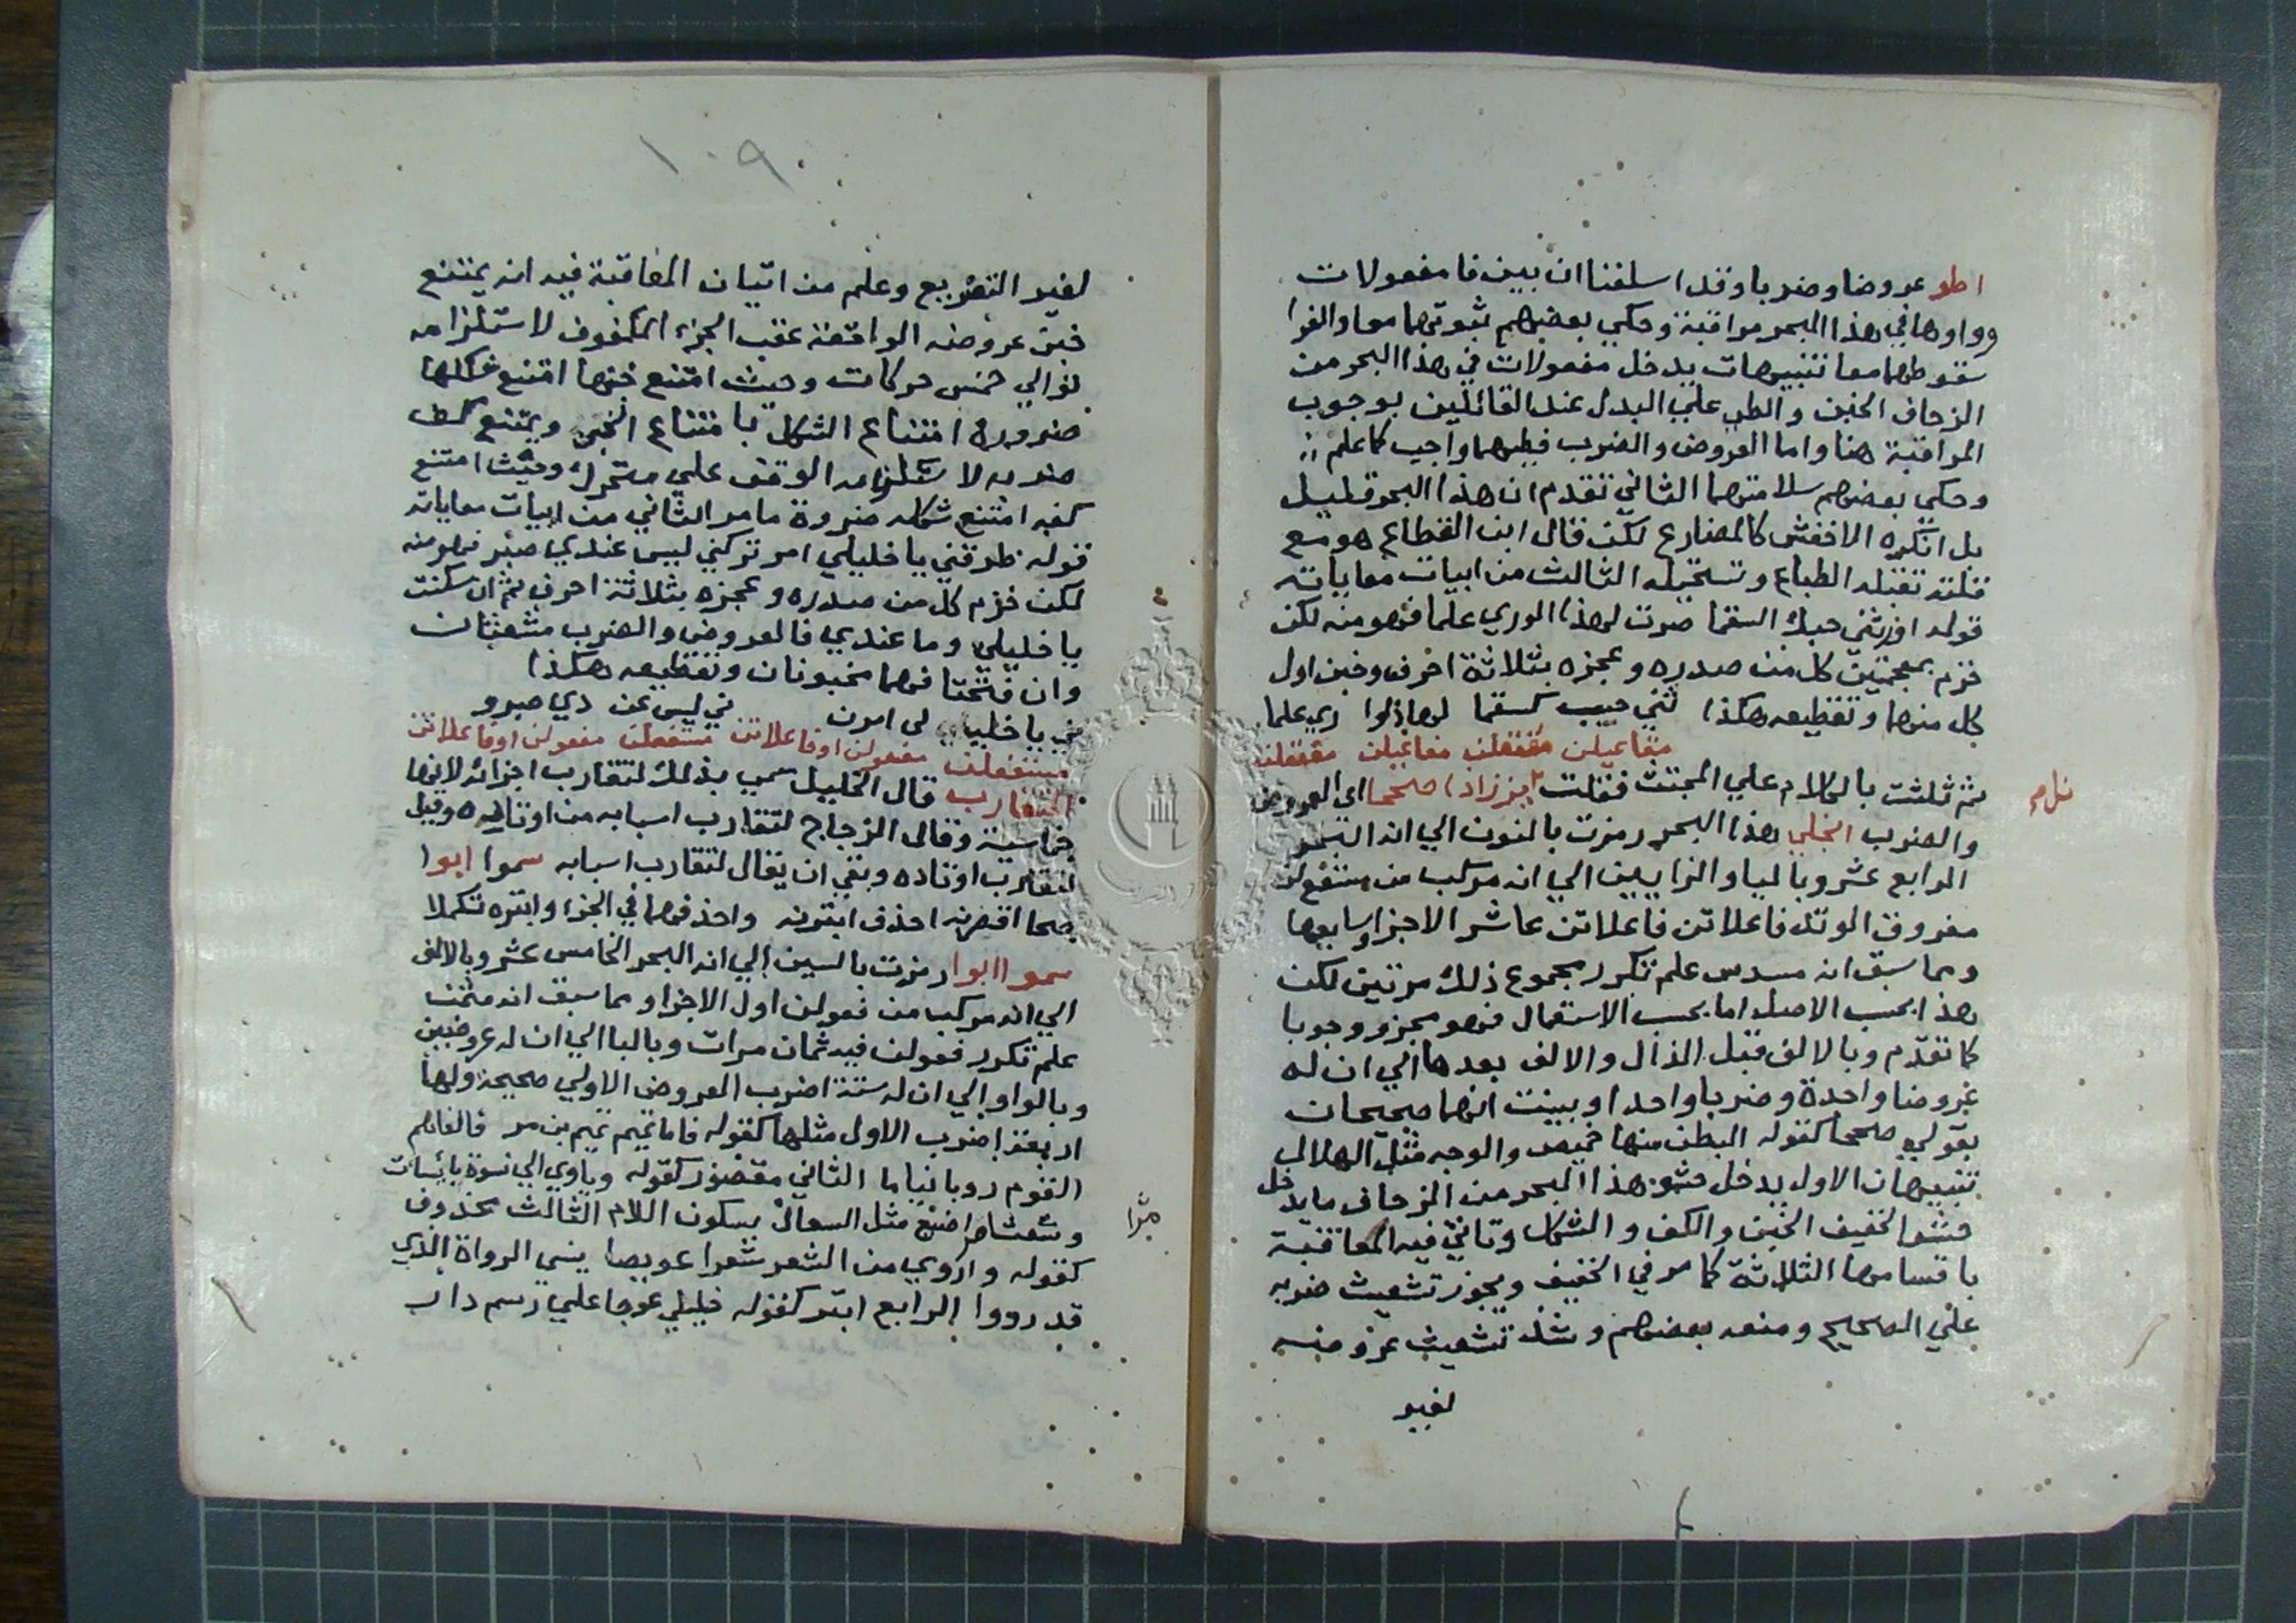 اطو عروضا وضربا وقد اسلفنا ان بين فا مفعولات
وواوها في هذا البحر مراقبة وحكي بعضهم ثبوتهما معا والفرا
سقوطهما معا تنبيهات يدخل مفعولات في هذا البحر من
الزحاف الخبن والطي علي البدل عند القائلين بوجوب
المراقبة هنا واما العروض والضرب فطيهما واجب كما علم
وحكي بعضهم سلامتهما الثاني تقدم ان هذا البحر قليل
بل انكره الاخفش كالمضارع لكن قال ابن القطاع هو مع
قلته تقبله الطباع وتستحيله الثالث من ابيات معاياته
قوله اورثني حبك السقما صرت لهذا الوري علما فهو منه لكن
خزم بمعجمتين كل من صدره وعجزه بثلاثة احرف وخبن اول
كل منهما وتقطيعه هكذا ثني حبيب كسقما لهاذلوا ري علما
مفاعيلن مفتعلن مفاعيلن مفتعلن
ثم ثلثت بالكلام علي المجتث فقلت نززاد صححا اي العروض
والضرب الخلي هذا البحر رمزت بالنون الي انه البحر
الرابع عشر وباليا والزايين الي انه مركب من مستفع لن
مفروق الوتد فاعلاتن فاعلاتن عاشر الاجزا وسابعها
ومما سبق انه مسدس علم تكرر مجموع ذلك مرتين لكن
هذا بحسب الاصل اما بحسب الاستعمال فهو مجزو وجوبا
كما تقدم وبالالف قبل الذال والالف بعدها الي ان له
عروضا واحدة وضربا واحدا وبينت انهما صحيحان
بقولي صححا كقوله البطن منها خميص والوجه مثل الهلال
تنبيهان الاول يدخل حشو هذا البحر من الزحاف ما يدخل
حشو الخفيف الخبن والكف والشكل وتاتي فيه المعاقبة
باقسامها الثلاثة كما مر في الخفيف ويجوز تشعيث ضربه
علي الصحيح ومنعه بعضهم وشذ تشعيث عروضه
لغير
١٠٩
لغير التصريع وعلم من اتيان المعاقبة فيه انه يمتنع
خبن عروضه الواقعة عقب الجزء المكفوف لاستلزامه
توالي خمس حركات وحيث امتنع خبنها امتنع شكلها
ضرورة امتناع الشكل بامتناع الخبن ويمتنع كف
ضربه لاستلزامه الوقف علي متحرك وحيث امتنع
كفه امتنع شكله ضرورة ما مر الثاني من ابيات معاياته
قوله طرقتني يا خليلي امر تركني ليس عندي صبر فهو منه
لكن خزم كل من صدره وعجزه بثلاثة احرف ثم ان سكنت
يا خليلي وما عندي فالعروض والضرب مشعثان
وان فتحتا فهما مخبونان وتقطيعه هكذا
ني يا خليلي لي امرن ني ليس عن دي صبرو
مستفعلن مفعولن او فاعلاتن مستفعلن مفعولن او فاعلاتن
المتقارب قال الخليل سمي بذلك لتقارب اجزائه لانها
خماسية وقال الزجاج لتقارب اسبابه من اوتاده وقيل
لتقارب اوتاده وبقي ان يقال لتقارب اسبابه سموا ابوا
صححا اقصرنه احذف ابترنه واحذفهما في الجزء وابتره تكملا
سموا ابوا رمزت بالسين الي انه البحر الخامس عشر وبالالف
الي انه مركب من فعولن اول الاجزا ومما سبق انه مثمن
علم تكرر فعولن فيه ثمان مرات وبالبا الي ان له عروضين
وبالواو الي ان له ستة اضرب العروض الاولي صحيحة ولها
اربعة اضرب الاول مثلها كقوله فاما تميم تميم بن مر فالفاهم
القوم روبا نياما الثاني مقصور كقوله وياوي الي نسوة بائسات
وشعثا مراضيع مثل السعال بسكون اللام الثالث محذوف
كقوله واروي من الشعر شعرا عويصا ينسي الرواة الذي
قد رووا الرابع ابتر كقوله خليلي عوجا علي رسم دار